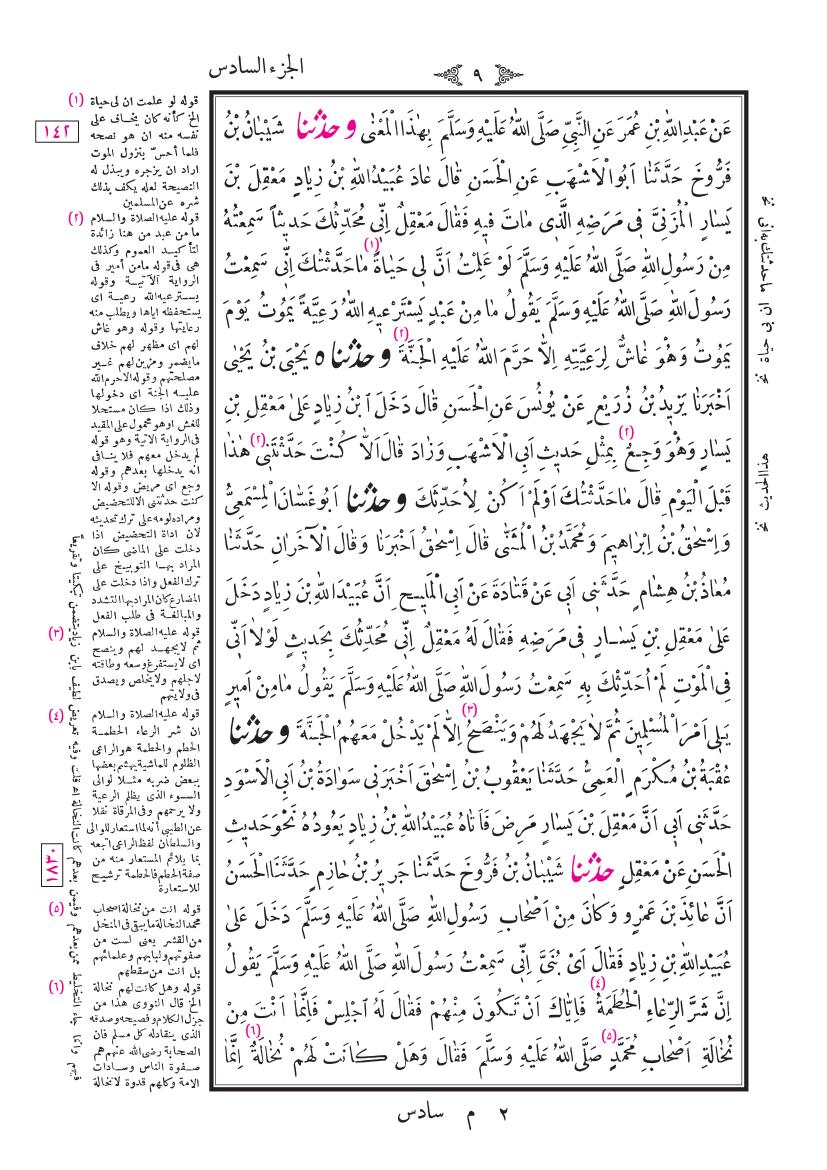 الجزء السادس
٩
عَنْ عَبْدِاللّٰهِ بْنِ عُمَرَ عَنِ النَّبِيِّ صَلَّى اللّٰهُ عَلَيْهِ وَسَلَّمَ بِهٰذَا الْمَعْنٰى وحدثنا شَيْبَانُ بْنُ
فَرُّوخَ حَدَّثَنَا اَبُو الْاَشْهَبِ عَنِ الْحَسَنِ قَالَ عَادَ عُبَيْدُ اللّٰهِ بْنُ زِيَادٍ مَعْقِلَ بْنَ
يَسَارٍ الْمُزَنِيَّ فِى مَرَضِهِ الَّذِى مَاتَ فِيهِ فَقَالَ مَعْقِلٌ اِنِّى مُحَدِّثُكَ حَدِيثاً سَمِعْتُهُ
مِنْ رَسُولِ اللّٰهِ صَلَّى اللّٰهُ عَلَيْهِ وَسَلَّمَ لَوْ عَلِمْتُ اَنَّ لِى حَيَاةً (١) مَا حَدَّثْتُكَ اِنِّى سَمِعْتُ
رَسُولَ اللّٰهِ صَلَّى اللّٰهُ عَلَيْهِ وَسَلَّمَ يَقُولُ مَا مِنْ عَبْدٍ يَسْتَرْعِيهِ اللّٰهُ رَعِيَّةً يَمُوتُ يَوْمَ
يَمُوتُ وَهُوَ غَاشٌّ لِرَعِيَّتِهِ اِلَّا حَرَّمَ اللّٰهُ عَلَيْهِ الْجَنَّةَ (٢) وحدثناه يَحْيَى بْنُ يَحْيٰى
اَخْبَرَنَا يَزِيدُ بْنُ زُرَيْعٍ عَنْ يُونُسَ عَنِ الْحَسَنِ قَالَ دَخَلَ ابْنُ زِيَادٍ عَلٰى مَعْقِلِ بْنِ
يَسَارٍ وَهُوَ وَجِعٌ (٢) بِمِثْلِ حَدِيثِ اَبِى الْاَشْهَبِ وَزَادَ قَالَ اَلَّا كُنْتَ حَدَّثْتَنِى (٢) هٰذَا
قَبْلَ الْيَوْمِ قَالَ مَا حَدَّثْتُكَ اَوْ لَمْ اَكُنْ لِاُحَدِّثَكَ وحدثنا اَبُو غَسَّانَ الْمِسْمَعِىُّ
وَاِسْحٰقُ بْنُ اِبْرَاهِيمَ وَمُحَمَّدُ بْنُ الْمُثَنّٰى قَالَ اِسْحٰقُ اَخْبَرَنَا وَقَالَ الْآخَرَانِ حَدَّثَنَا
مُعَاذُ بْنُ هِشَامٍ حَدَّثَنِى اَبِى عَنْ قَتَادَةَ عَنْ اَبِى الْمَلِيحِ اَنَّ عُبَيْدَ اللّٰهِ بْنَ زِيَادٍ دَخَلَ
عَلٰى مَعْقِلِ بْنِ يَسَارٍ فِى مَرَضِهِ فَقَالَ لَهُ مَعْقِلٌ اِنِّى مُحَدِّثُكَ بِحَدِيثٍ لَوْلَا اَنِّى
فِى الْمَوْتِ لَمْ اُحَدِّثْكَ بِهِ سَمِعْتُ رَسُولَ اللّٰهِ صَلَّى اللّٰهُ عَلَيْهِ وَسَلَّمَ يَقُولُ مَا مِنْ اَمِيرٍ
يَلِى اَمْرَ الْمُسْلِمِينَ ثُمَّ لَا يَجْهَدُ لَهُمْ وَيَنْصَحُ (٣) اِلَّا لَمْ يَدْخُلْ مَعَهُمُ الْجَنَّةَ وحدثنا
عُقْبَةُ بْنُ مُكْرَمٍ الْعَمِّىُّ حَدَّثَنَا يَعْقُوبُ بْنُ اِسْحٰقَ اَخْبَرَنِى سَوَادَةُ بْنُ اَبِى الْاَسْوَدِ
حَدَّثَنِى اَبِى اَنَّ مَعْقِلَ بْنَ يَسَارٍ مَرِضَ فَاَتَاهُ عُبَيْدُ اللّٰهِ بْنُ زِيَادٍ يَعُودُهُ نَحْوَ حَدِيثِ
الْحَسَنِ عَنْ مَعْقِلٍ حدثنا شَيْبَانُ بْنُ فَرُّوخَ حَدَّثَنَا جَرِيرُ بْنُ حَازِمٍ حَدَّثَنَا الْحَسَنُ
اَنَّ عَائِذَ بْنَ عَمْرٍو وَكَانَ مِنْ اَصْحَابِ رَسُولِ اللّٰهِ صَلَّى اللّٰهُ عَلَيْهِ وَسَلَّمَ دَخَلَ عَلٰى
عُبَيْدِ اللّٰهِ بْنِ زِيَادٍ فَقَالَ اَىْ بُنَىَّ اِنِّى سَمِعْتُ رَسُولَ اللّٰهِ صَلَّى اللّٰهُ عَلَيْهِ وَسَلَّمَ يَقُولُ
اِنَّ شَرَّ الرِّعَاءِ الْحُطَمَةُ (٤) فَاِيَّاكَ اَنْ تَكُونَ مِنْهُمْ فَقَالَ لَهُ اجْلِسْ فَاِنَّمَا اَنْتَ مِنْ
نُخَالَةِ اَصْحَابِ مُحَمَّدٍ (٥) صَلَّى اللّٰهُ عَلَيْهِ وَسَلَّمَ فَقَالَ وَهَلْ كَانَتْ لَهُمْ نُخَالَةٌ (٦) اِنَّمَا
٢ م سادس
(١) قوله لو علمت ان لى حياة
الخ كأنه كان يخاف على
١٤٢
نفسه منه ان هو نصحه
فلما أحس بنزول الموت
اراد ان يزجره ويبذل له
النصيحة لعله يكف بذلك
شره عن المسلمين
(٢) قوله عليه الصلاة والسلام
ما من عبد من هنا زائدة
لتأكيد العموم وكذلك
هى فى قوله ما من أمير فى
الرواية الآتية وقوله
يسترعيه الله رعية اى
يستحفظه اياها ويطلب منه
رعايتها وقوله وهو غاش
لهم اى مظهر لهم خلاف
ما يضمر ومزين لهم غير
مصلحتهم وقوله الا حرم الله
عليه الجنة اى دخولها
وذلك اذا كان مستحلا
للغش اوهو محمول على المقيد
فى الرواية الاتية وهو قوله
لم يدخل معهم فلا ينافى
انه يدخلها بعدهم وقوله
وجع اى مريض وقوله الا
كنت حدثتنى الا للتحضيض
ومراده لومه على ترك تحديثه
لان اداة التحضيض اذا
دخلت على الماضى كان
المراد بها التوبيخ على
ترك الفعل واذا دخلت على
المضارع كان المراد بها التشدد
والمبالغة فى طلب الفعل
(٣) قوله عليه الصلاة والسلام
ثم لا يجهد لهم وينصح
اى لا يستفرغ وسعه وطاقته
لاجلهم ولا يخلص ويصدق
فى ولايتهم
(٤) قوله عليه الصلاة والسلام
ان شر الرعاء الحطمة
الحطم والحطمة هو الراعى
الظلوم للماشية يهشم بعضها
ببعض ضربه مثلا لوالى
السوء الذى يظلم الرعية
ولا يرحمهم وفى المرقاة نقلا
عن الطيبى أنه لما استعار للوالى
والسلطان لفظ الراعى اتبعه
بما يلائم المستعار منه من
١٨٣٠
صفة الحطم فالحطمة ترشيح
للاستعارة
(٥) قوله انت من نخالة اصحاب
محمد النخالة ما يبقى فى المنخل
من القشر يعنى لست من
صفوتهم ولبابهم وعلمائهم
بل انت من سقطهم
(٦) قوله وهل كانت لهم نخالة
الخ قال النووى هذا من
جزل الكلام وفصيحه وصدقه
الذى ينقاد له كل مسلم فان
الصحابة رضى الله عنهم هم
صفوة الناس وسادات
الامة وكلهم قدوة لا نخالة
فيهم وانما جاء التخليط من بعدهم وفيمن بعدهم كانت النخالة اه قلت وفيه تعريض لطيف بابن زياد يتضمن تبكيتا وتقريعا
ان بى حياة نخ
ما حدثتك به انى نخ
هذا الحديث نخ